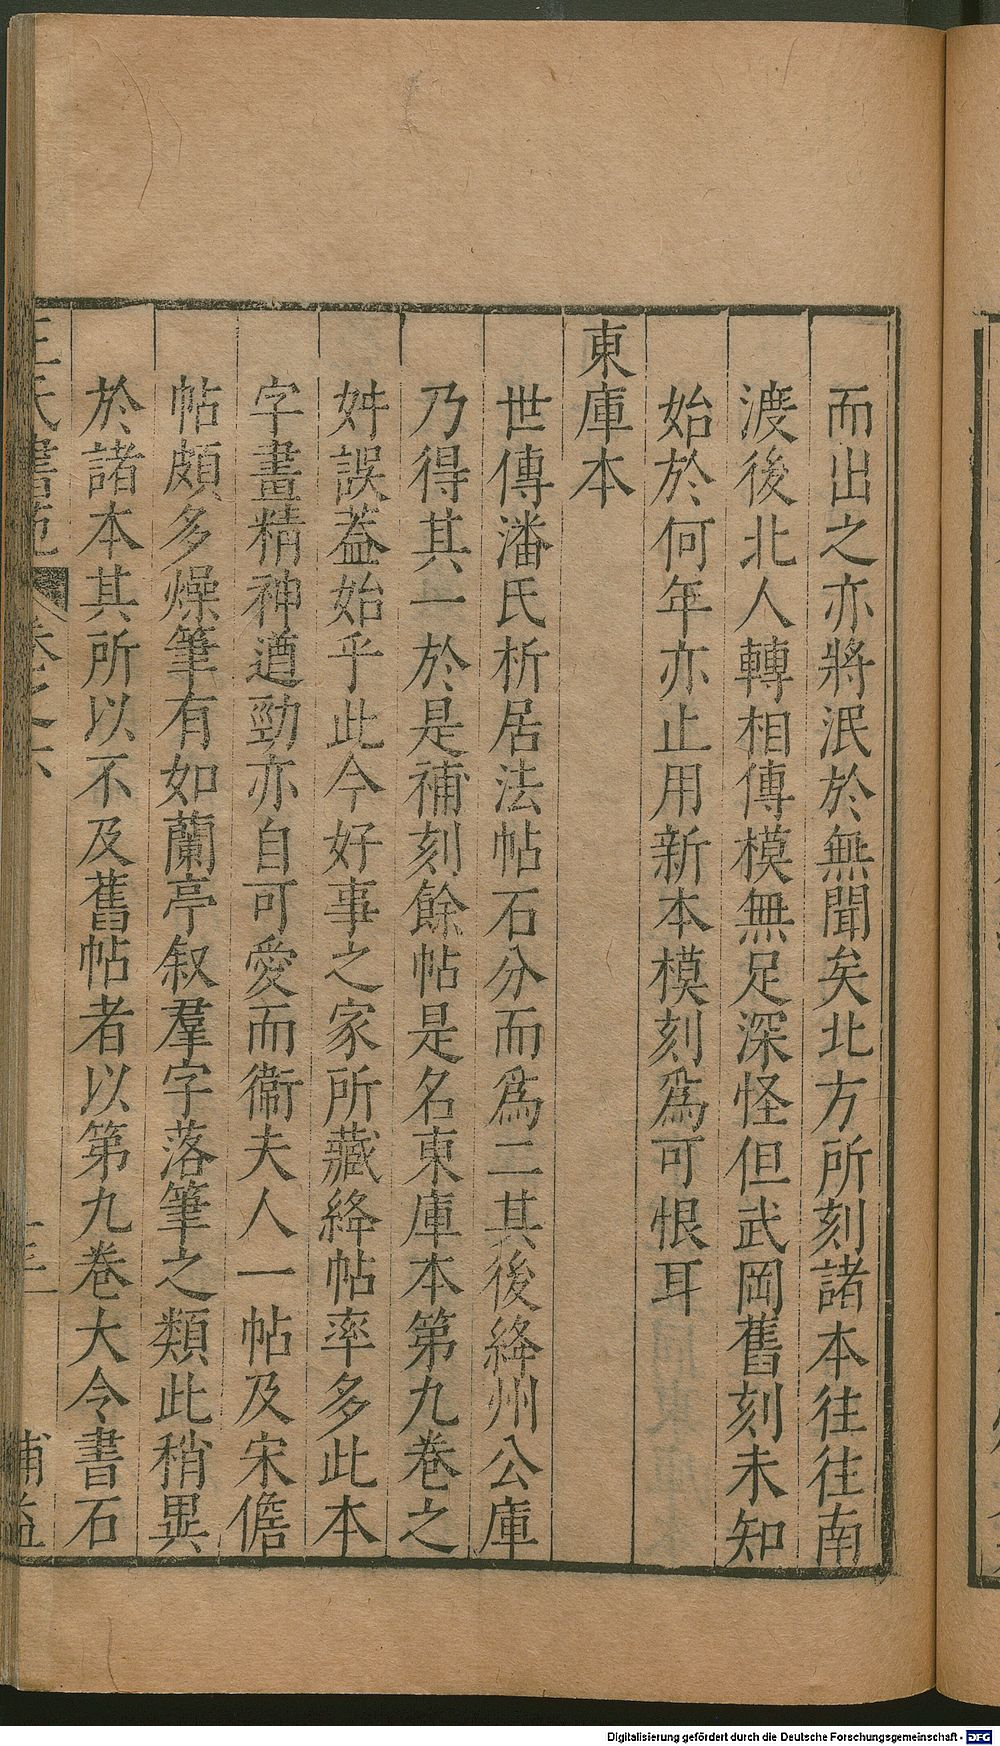 而出之亦將泯於無聞矣北方所刻諸本往往南
渡後北人轉相傳模無足深怪但武岡舊刻未知
始於何年亦止用新本模刻爲可恨耳
東庫本
世傳潘氏析居法帖石分而爲二其後絳州公庫
乃得其一於是補刻餘帖是名東庫本第九卷之
舛誤葢始乎此今好事之家所藏絳帖率多此本
字畫精神遒勁亦自可愛而衞夫人一帖及宋儋
帖頗多燥筆有如蘭亭叙羣字落筆之類此稍異
於諸本其所以不及舊帖者以第九卷大令書石
王氏書苑 卷之六 補益
Digitalisierung gefördert durch die Deutsche Forschungsgemeinschaft - DFG